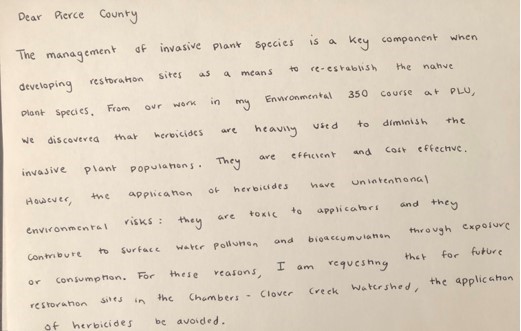 Dear Pierce County
The management of invasive plant species is a key component when
developing restoration sites as a means to re-establish the native
plant species. From our work in my Environmental 350 course at PLU,
we discovered that herbicides are heavily used to diminish the
invasive plant populations. They are efficient and cost effective.
However, the application of herbicides have unintentional
environmental risks: they are toxic to applicators and they
contribute to surface water pollution and bioaccumulation through exposure
or consumption. For these reasons, I am requesting that for future
restoration sites in the Chambers - Clover Creek Watershed, the application
of herbicides be avoided.